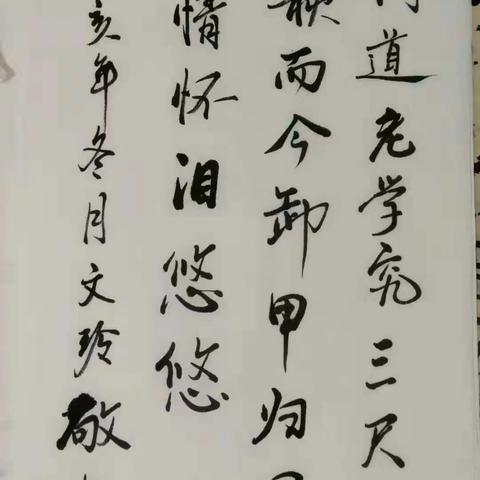 道老学究三尺
而今卸甲归
情怀泪悠悠
亥年冬月文玲敬